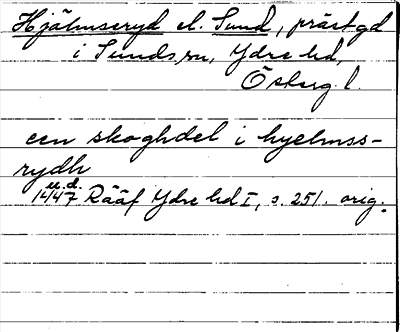 Hjälmseryd el. Sund, prästgd
i Sunds sn, Ydre hd,
Österg. l.
een skoghdel i hyelmss-
rydh
u.d.
14/4 7 Rääf Ydre hd I, s. 251. orig.